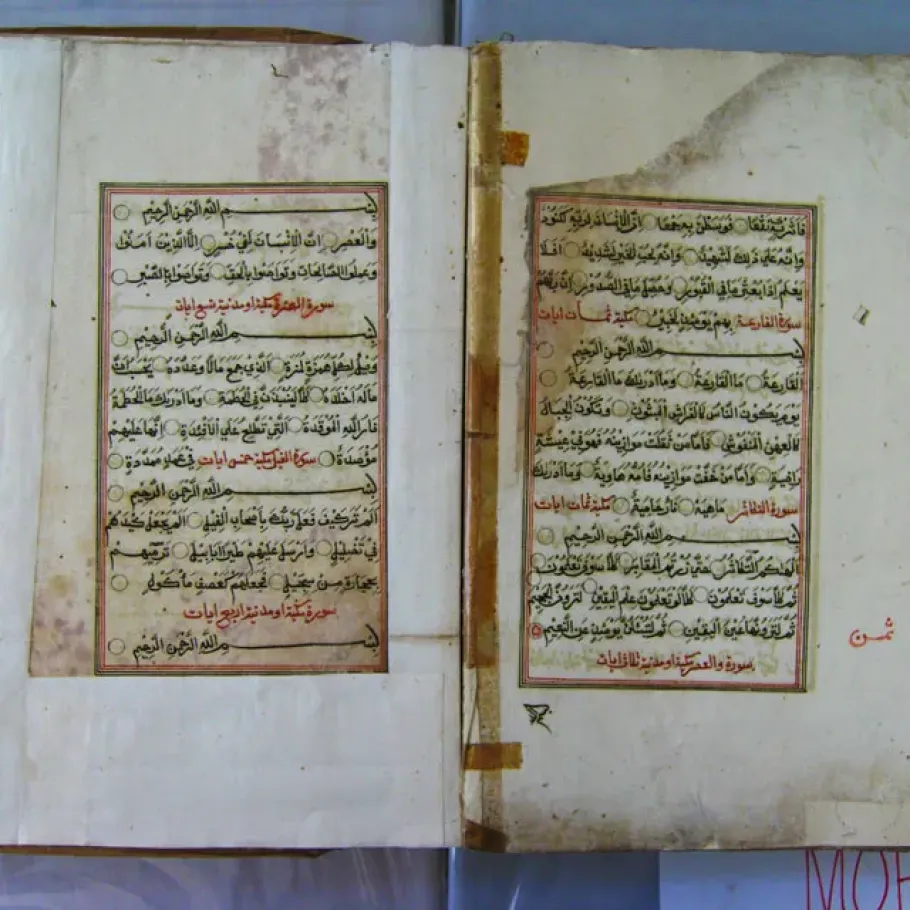 فَأَثَرْنَ بِهِ نَقْعًا فَوَسَطْنَ بِهِ جَمْعًا اِنَّ الْاِنْسَانَ لِرَبِّهِ لَكَنُودٌ
وَاِنَّهُ عَلَى ذَلِكَ لَشَهِيدٌ وَاِنَّهُ لِحُبِّ الْخَيْرِ لَشَدِيدٌ اَفَلَا
يَعْلَمُ اِذَا بُعْثِرَ مَا فِي الْقُبُورِ وَحُصِّلَ مَا فِي الصُّدُورِ اِنَّ رَبَّهُمْ
سورة القارعة بِهِمْ يَوْمَئِذٍ لَخَبِيرٌ مكية ثمات ايات
بِسْمِ اللَّهِ الرَّحْمَنِ الرَّحِيمِ
الْقَارِعَةُ مَا الْقَارِعَةُ وَمَا اَدْرِيكَ مَا الْقَارِعَةُ
يَوْمَ يَكُونُ النَّاسُ كَالْفَرَاشِ الْمَبْثُوثِ وَتَكُونُ الْجِبَالُ
كَالْعِهْنِ الْمَنْفُوشِ فَاَمَّا مَنْ ثَقُلَتْ مَوَازِينُهُ فَهُوَ فِي عِيشَةٍ
رَاضِيَةٍ وَاَمَّا مَنْ خَفَّتْ مَوَازِينُهُ فَاُمُّهُ هَاوِيَةٌ وَمَا اَدْرِيكَ
سورة التكاثر مَاهِيَهْ نَارٌ حَامِيَةٌ مكية ثمات ايات
بِسْمِ اللَّهِ الرَّحْمَنِ الرَّحِيمِ
اَلْهَيكُمُ التَّكَاثُرُ حَتَّى زُرْتُمُ الْمَقَابِرَ كَلَّا سَوْفَ تَعْلَمُونَ
ثُمَّ كَلَّا سَوْفَ تَعْلَمُونَ كَلَّا لَوْ تَعْلَمُونَ عِلْمَ الْيَقِينِ لَتَرَوُنَّ الْجَحِيمَ
ثُمَّ لَتَرَوُنَّهَا عَيْنَ الْيَقِينِ ثُمَّ لَتُسْئَلُنَّ يَوْمَئِذٍ عَنِ النَّعِيمِ
سورة والعصر مكية او مدنية ثلاث ايات
ثمن
بِسْمِ اللَّهِ الرَّحْمَنِ الرَّحِيمِ
وَالْعَصْرِ اِنَّ الْاِنْسَانَ لَفِي خُسْرٍ اِلَّا الَّذِينَ اٰمَنُوا
وَعَمِلُوا الصَّالِحَاتِ وَتَوَاصَوْا بِالْحَقِّ وَتَوَاصَوْا بِالصَّبْرِ
سورة الهمزة مكية او مدنية تسع ايات
بِسْمِ اللَّهِ الرَّحْمَنِ الرَّحِيمِ
وَيْلٌ لِكُلِّ هُمَزَةٍ لُمَزَةٍ الَّذِي جَمَعَ مَالًا وَعَدَّدَهُ يَحْسَبُ اَنَّ
مَالَهُ اَخْلَدَهُ كَلَّا لَيُنْبَذَنَّ فِي الْحُطَمَةِ وَمَا اَدْرِيكَ مَا الْحُطَمَةُ
نَارُ اللَّهِ الْمُوقَدَةُ الَّتِي تَطَّلِعُ عَلَى الْاَفْئِدَةِ اِنَّهَا عَلَيْهِمْ
مُؤْصَدَةٌ سورة الفيل مكية خمس ايات فِي عَمَدٍ مُمَدَّدَةٍ
بِسْمِ اللَّهِ الرَّحْمَنِ الرَّحِيمِ
اَلَمْ تَرَ كَيْفَ فَعَلَ رَبُّكَ بِاَصْحَابِ الْفِيلِ اَلَمْ يَجْعَلْ كَيْدَهُمْ
فِي تَضْلِيلٍ وَاَرْسَلَ عَلَيْهِمْ طَيْرًا اَبَابِيلَ تَرْمِيهِمْ
بِحِجَارَةٍ مِنْ سِجِّيلٍ فَجَعَلَهُمْ كَعَصْفٍ مَاْكُولٍ
سورة مكية او مدنية اربع ايات
بِسْمِ اللَّهِ الرَّحْمَنِ الرَّحِيمِ